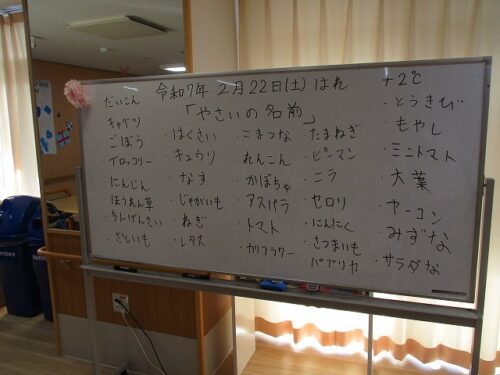 令和7年 2月22日(土) はれ +2℃
「やさいの名前」
・だいこん
・キャベツ
・ごぼう
・ブロッコリー
・にんじん
・ほうれん草
・ちんげんさい
・さといも
・はくさい
・キュウリ
・なす
・じゃがいも
・ねぎ
・レタス
・こまつな
・れんこん
・かぼちゃ
・アスパラ
・トマト
・カリフラワー
・たまねぎ
・ピーマン
・ニラ
・セロリ
・にんにく
・さつまいも
・パプリカ
・とうきび
・もやし
・ミニトマト
・大葉
・ヤーコン
・みずな
・サラダな